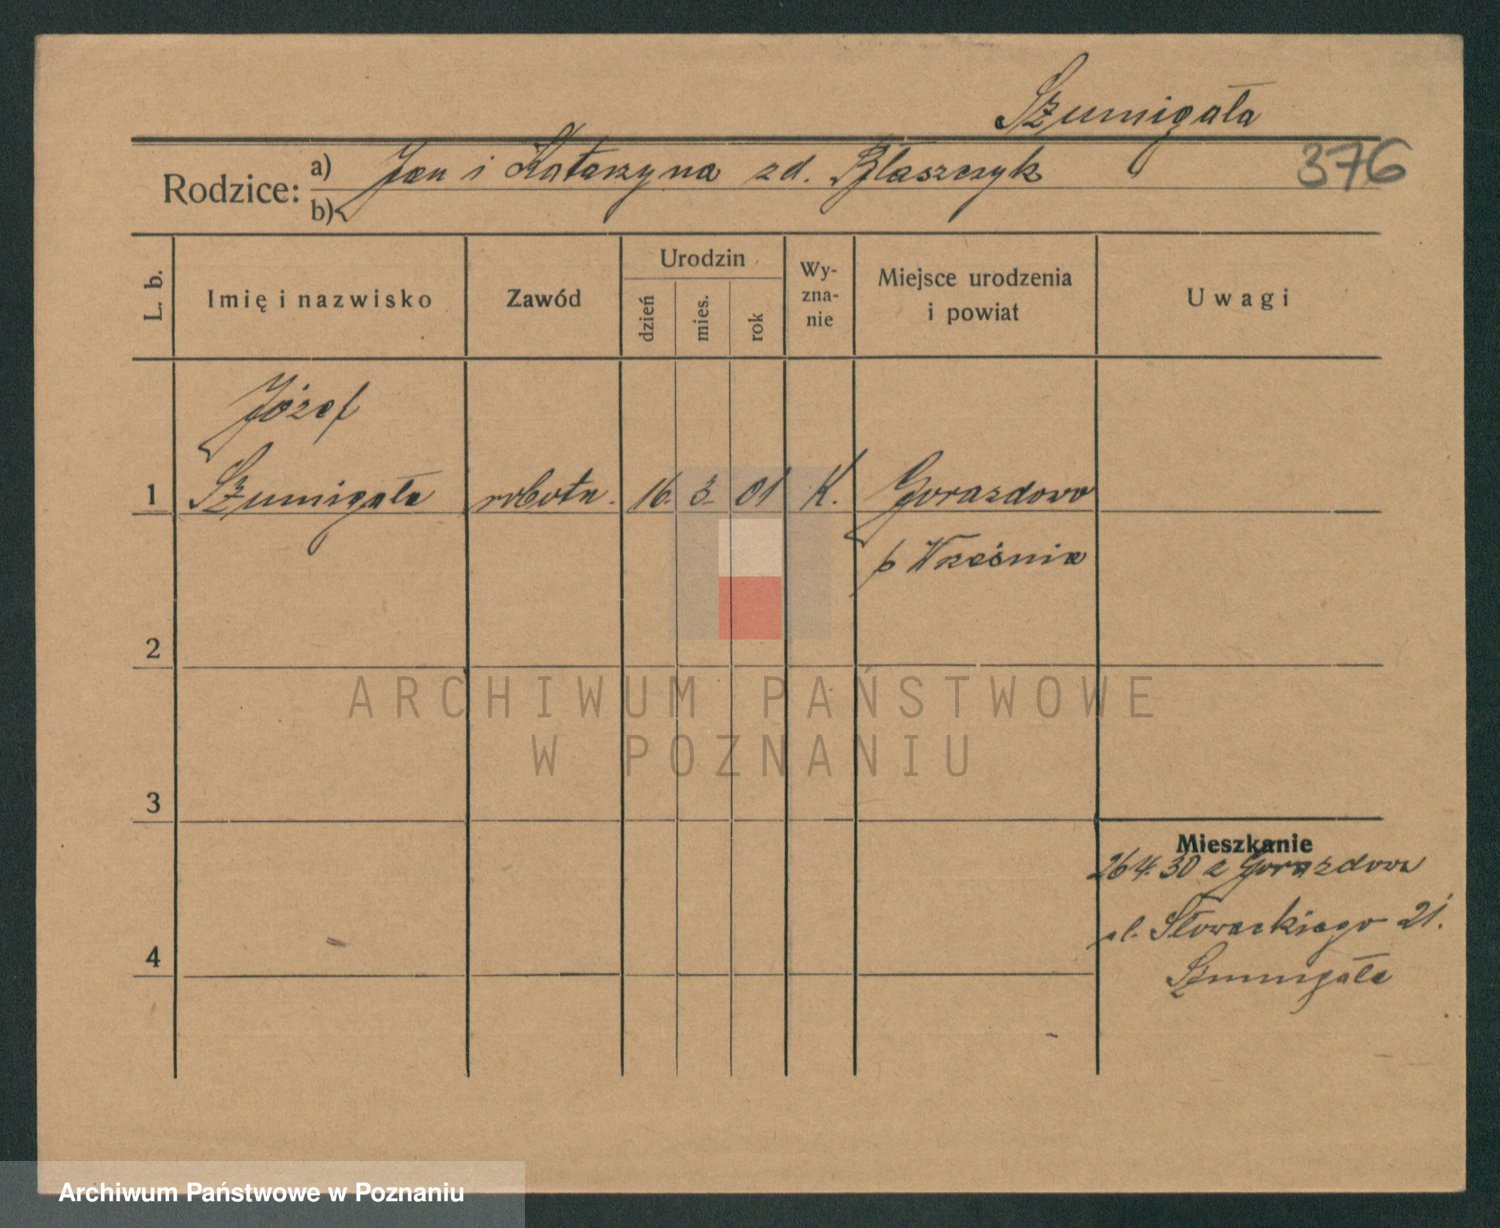 Szumigała
Rodzice: a) Jan i Katarzyna zd. Błaszczyk 376
b)
L. b. Imię i nazwisko Zawód Urodzin dzień mies. rok Wy-zna-nie Miejsce urodzenia i powiat Uwagi
Józef
1 Szumigała robotn. 16. 3. 01 K. Gorazdowo
p Września
2
ARCHIWUM PAŃSTWOWE
W POZNANIU
3
Mieszkanie
26 4. 30 z Gorazdowa
4 ul. Słowackiego 21.
Szumigała
Archiwum Państwowe w Poznaniu